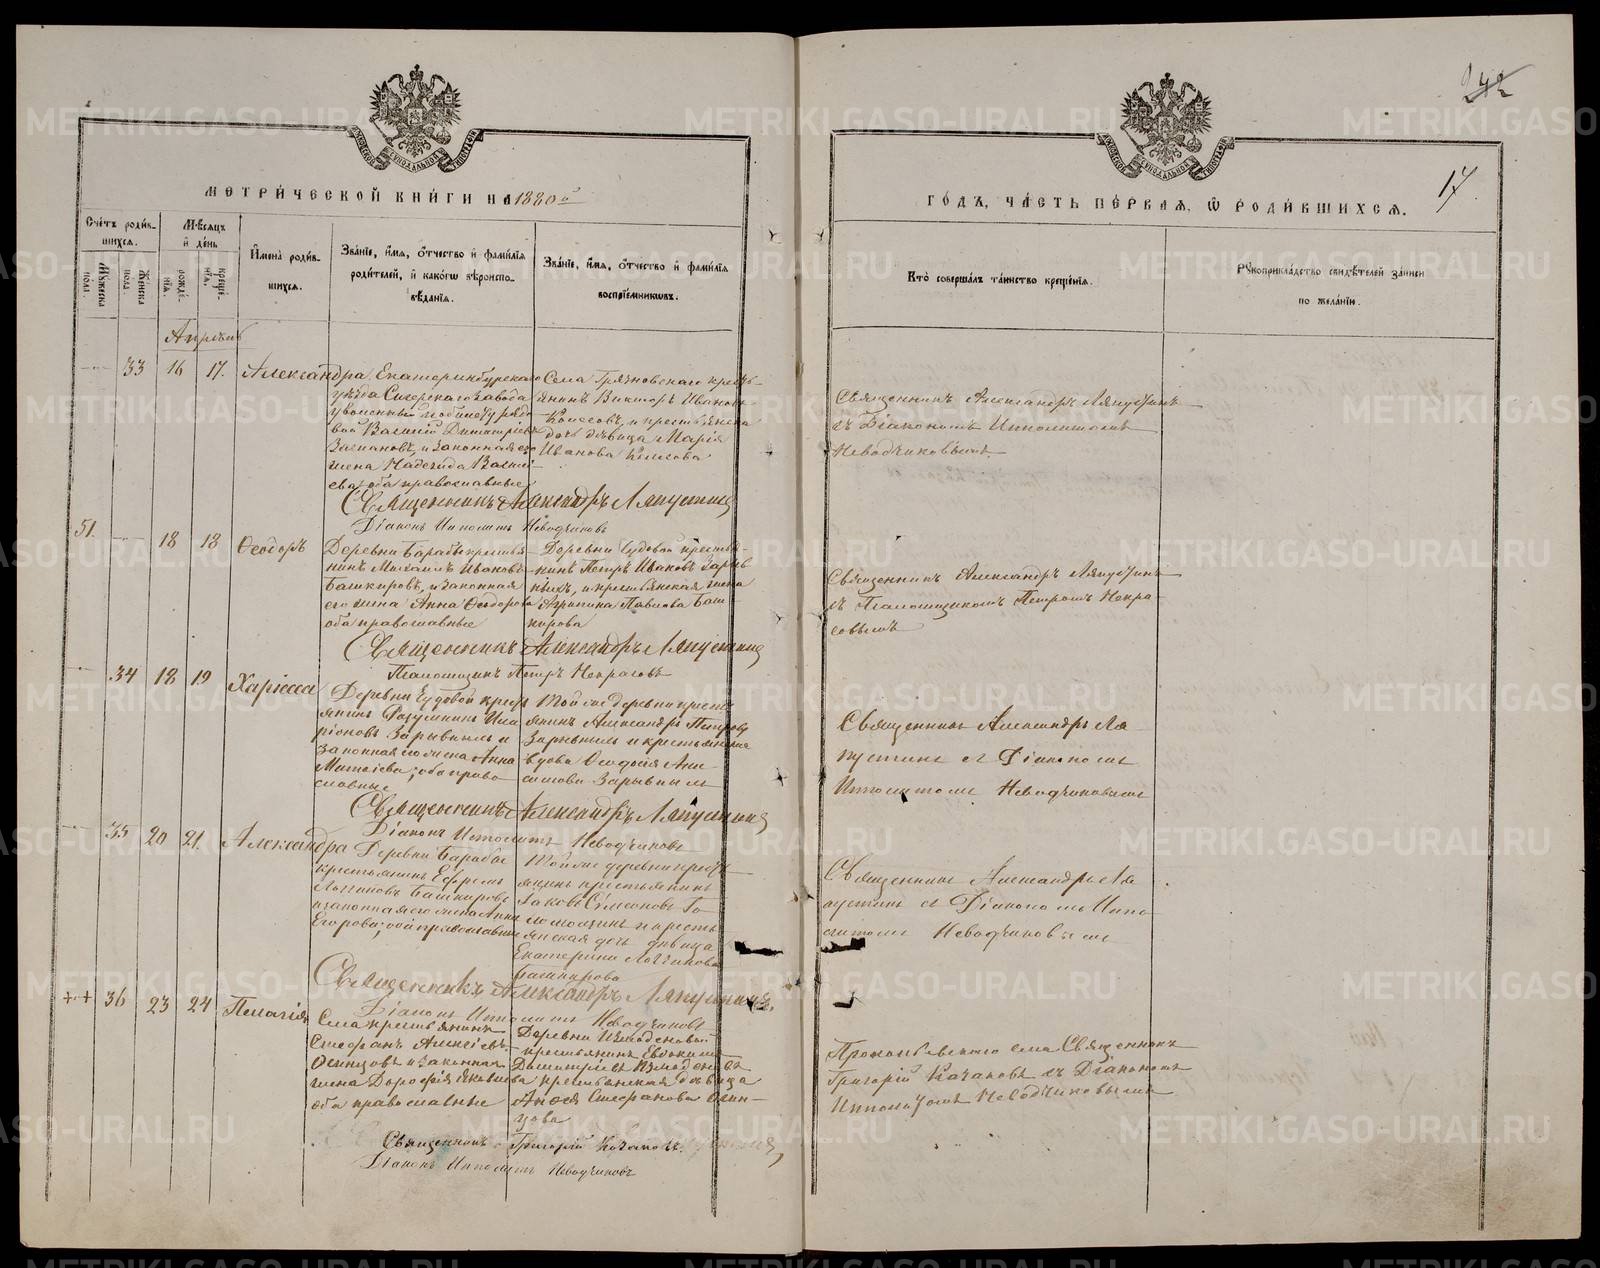 242
17
МЕТРИ́ЧЕСКОЙ КНИ́ГИ НА 1880й
ГО́ДЪ, ЧА́СТЬ ПЕ́РВАЯ, Ѡ РОДИ́ВШИХСЯ.
Сче́тъ роди́вшихся.
Му́жеска пола.
Же́нска пола.
Мѣ́сяцъ и де́нь
рожде́нїѧ.
креще́нїѧ.
И҆мена̀ роди́вшихся.
Зва́нїе, и҆́мя, ѻ҆́тчество и҆ фами́лїя роди́телей, и҆ како́гѡ вѣроисповѣ́данїя.
Зва́нїе, и҆́мя, ѻ҆́тчество и҆ фами́лїя воспрїе́мникѡвъ.
Кто̀ соверша́лъ та́инство креще́нїя.
Рꙋкоприкла́дство свидѣ́телей за́писи по жела́нїю.
Апрѣль
33 16 17. Александра
Екатеринбурскаго
уѣзда Сысерскаго завода
уволенный
Василий Димитріевъ
и законная его
жена Надежда Василь-
ева оба православные
Села Грязновскаго кресть-
янинъ Викторъ Ивановъ
и крестьянска
дочь дѣвица Марія
Иванова
Священникъ Александръ Ляпустинъ
съ Діакономъ Ипполитомъ
Неводчиковымъ
Священникъ Александръ Ляпустинъ
Діаконъ Ипполитъ Неводчиковъ
51. 18 18 Ѳеодоръ
Деревни Барабы крестья-
нинъ Михаилъ Ивановъ
Башкировъ, и законная
его жена Анна Ѳеодорова
оба православные
Деревни Чудовой крестья-
нинъ Петръ Иваковъ Зарыв-
ныхъ, и крестьянская жена
Агрипина Павлова Баш-
кирова
Священникъ Александръ Ляпустинъ
съ Псаломщикомъ Петромъ Некра-
совымъ
Священникъ Александръ Ляпустинъ
Псаломщикъ Петръ Некрасовъ
34 18 19 Харіесса
Деревни Чудовой крест
янинъ Ила
ріоновъ Зарывныхъ и
законная его жена Анна
Матвіева, оба право-
славные
Той же деревни крестья
янинъ Александръ Петровъ
Зарывныхъ и крестьянская
вдова Ѳеодосія Ани-
симова Зарывныхъ
Священникъ Александръ Ля-
пустинъ съ Діакономъ
Ипполитомъ Неводчиковымъ
Священникъ Александръ Ляпустинъ
Діаконъ Ипполитъ Неводчиковъ
35 20 21. Александра
Деревни Барабы
крестьянинъ Ефремъ
Логгиновъ Башкировъ
и законная его жена Анна
Егорова, оба православные
Той же деревни кресть
янинъ крестьянинъ
Іаковъ Симеоновъ Го-
ломолзинъ и кресть-
янская дочь дѣвица
Екатерина Логгинова
Башкирова
Священникъ Александръ Ля
пустинъ съ Діакономъ Иппо
литомъ Неводчиковымъ
Священникъ Александръ Ляпустинъ.
Діаконъ Ипполитъ Неводчиковъ
+ + 36 23 24 Пелагія
Села крестьянинъ
Стефанъ Алексіевъ
Осинцовъ и законная
жена Дорофія Яковлева
оба православные
Деревни
крестьянинъ Евдокимъ
Димитріевъ
крестьянская дѣвица
Анѳся Стефанова Осин-
цова
Прокопьевскаго села Священникъ
Григорій Качановъ съ Діакономъ
Ипполитомъ Неводчиковымъ
Священникъ Григорій Качановъ.
Діаконъ Ипполитъ Неводчиковъ
METRIKI.GASO-URAL.RU